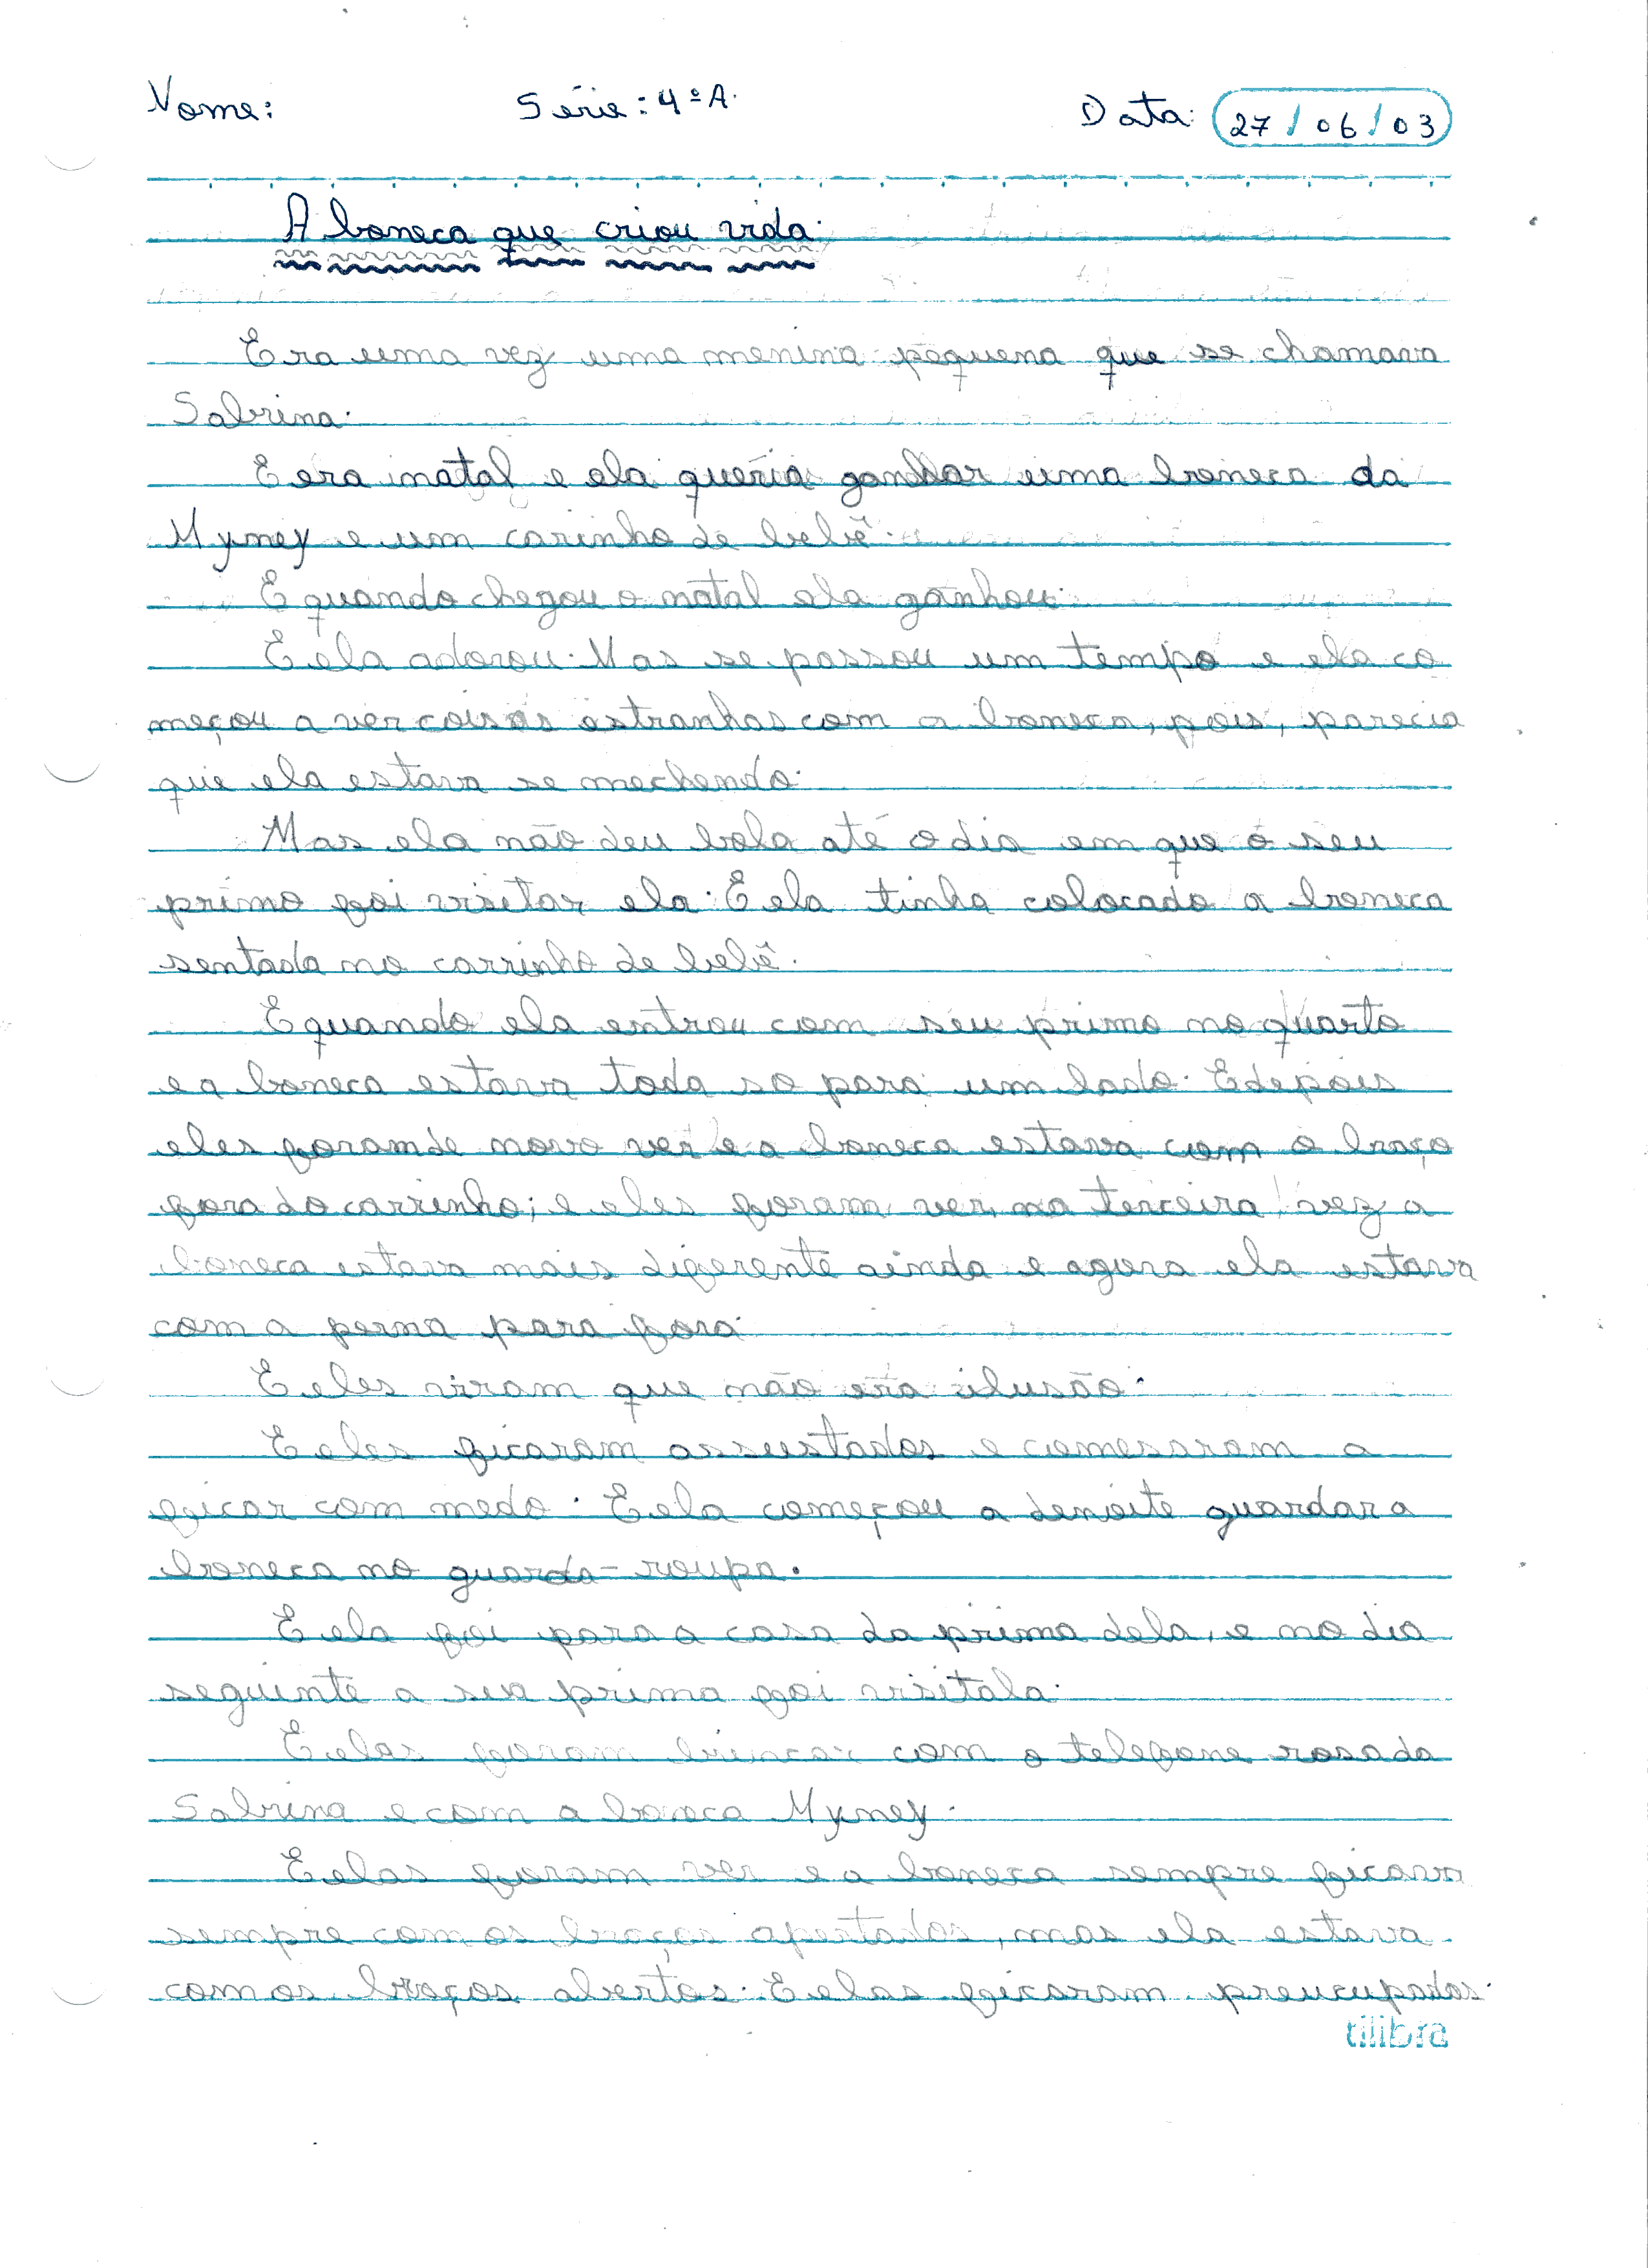 Nome: Série: 4ª A. Data: 27/06/03
A boneca que criou vida.
Era uma vez uma menina pequena que se chamava
Sabrina.
E era natal e ela queria ganhar uma boneca da
Mymey e um carinho de bebê.
E quando chegou o natal ela ganhou.
E ela adorou. Mas se passou um tempo e ela co
meçou a ver coisas estranhas com a boneca, pois, parecia
que ela estava se mechendo.
Mas ela não deu bola até o dia em que o seu
primo foi visitar ela. E ela tinha colocado a boneca
sentada no carrinho de bebê.
E quando ela entrou com seu primo no quarto
e a boneca estava toda so para um lado. E depois
eles foram de novo ver e a boneca estava com o braço
fora do carrinho; e eles foram ver na terceira vez a
boneca estava mais diferente ainda e agora ela estava
com a perna para fora.
E eles viram que não era ilusão.
E eles ficaram assustados e comesaram a
ficar com medo. E ela começou a denoite guardar a
boneca no guarda-roupa.
E ela foi para a casa da prima dela, e no dia
seguinte a sua prima foi visitala.
E elas foram brincar com o telefone rosa da
Sabrina e com a boneca Mymey.
E elas foram ver e a boneca sempre ficava
sempre com os braços apertados, mas ela estava
com os braços abertos. E elas ficaram preucupadas.
tilibra